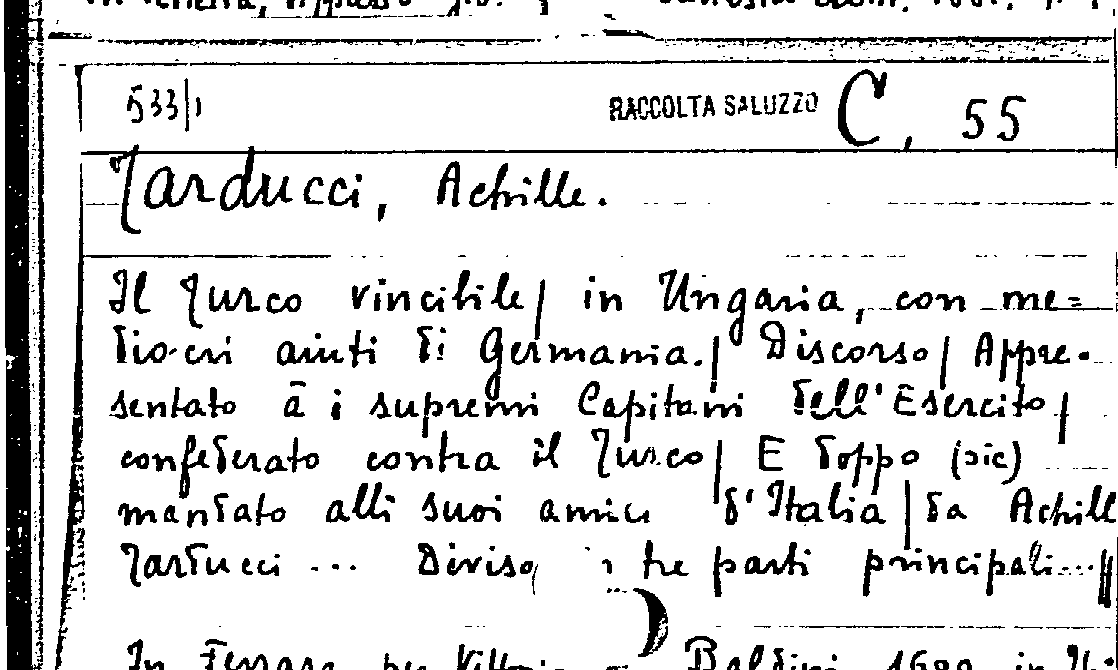 533/1 RACCOLTA SALUZZO C, 55
Tarducci, Achille.
Il Turco vincibile/ in Ungaria, con me=
diocri aiuti di Germania./ Discorso/ Appre-
sentato ā i supremi Capitani dell'Esercito/
confederato contra il Turco/ E doppo (sic)
mandato alli suoi amici d'Italia/ da Achill
Tarducci ... Diviso tre parti principali...//
In Ferrara per Vittorio Baldini, 1600